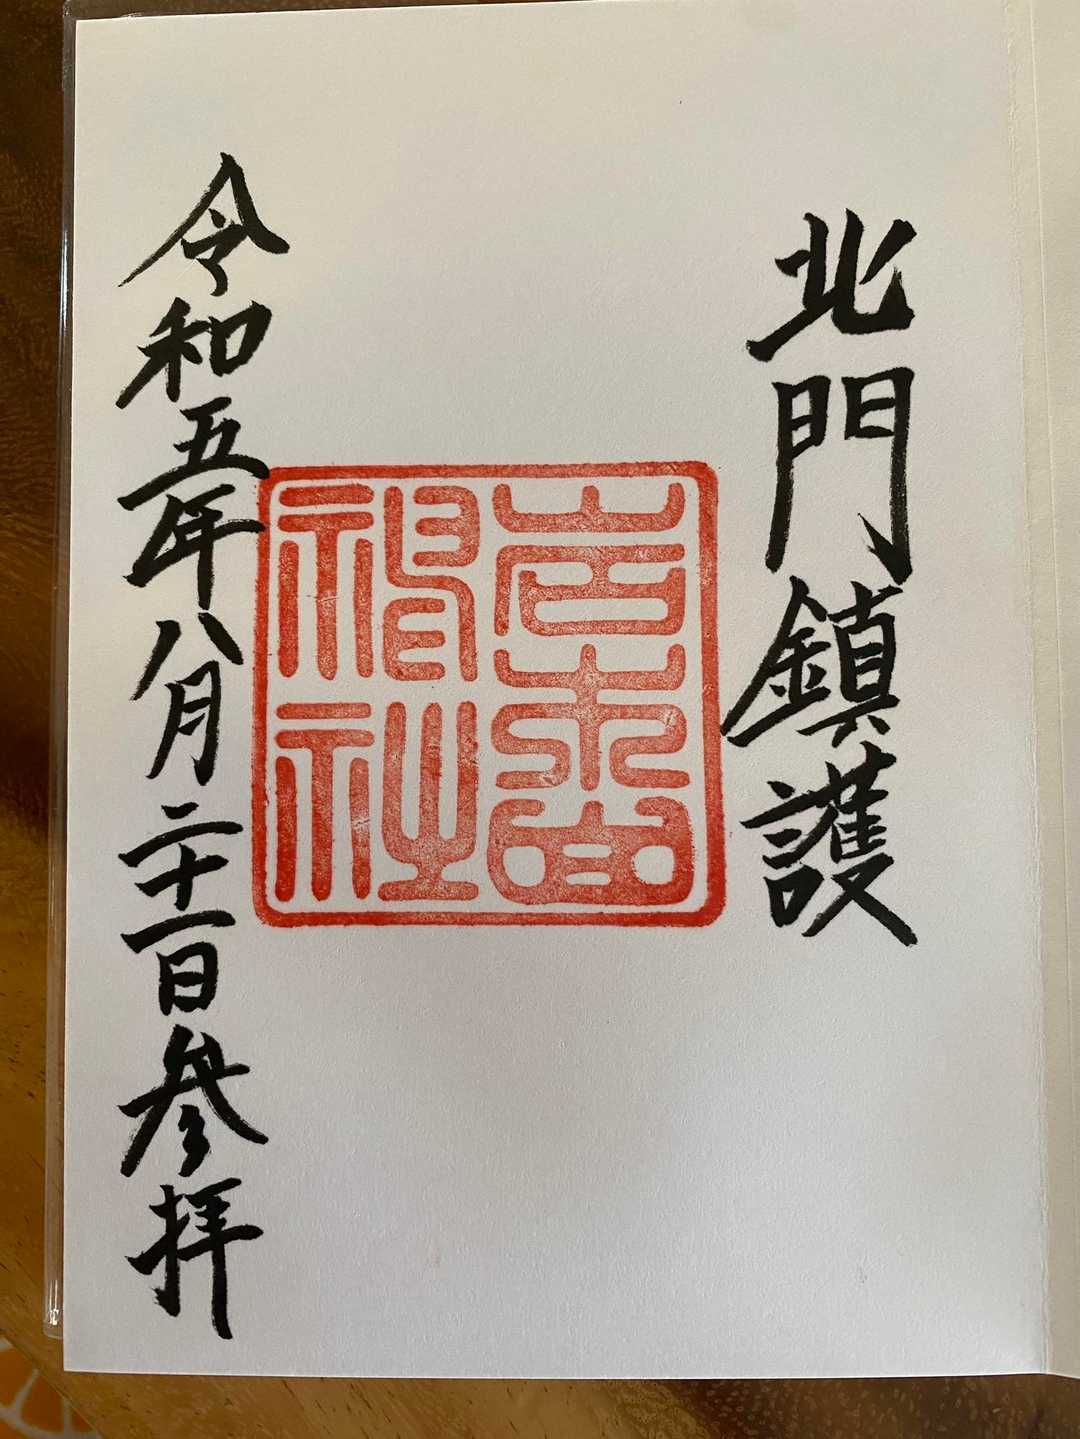 北門鎮護
岩木山
神社
令和五年八月二十一日参拝